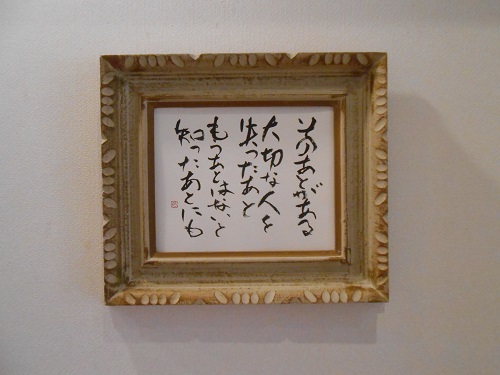 そのあとがある
大切な人を
失ったあと
もうあとはないと
知ったあとにも